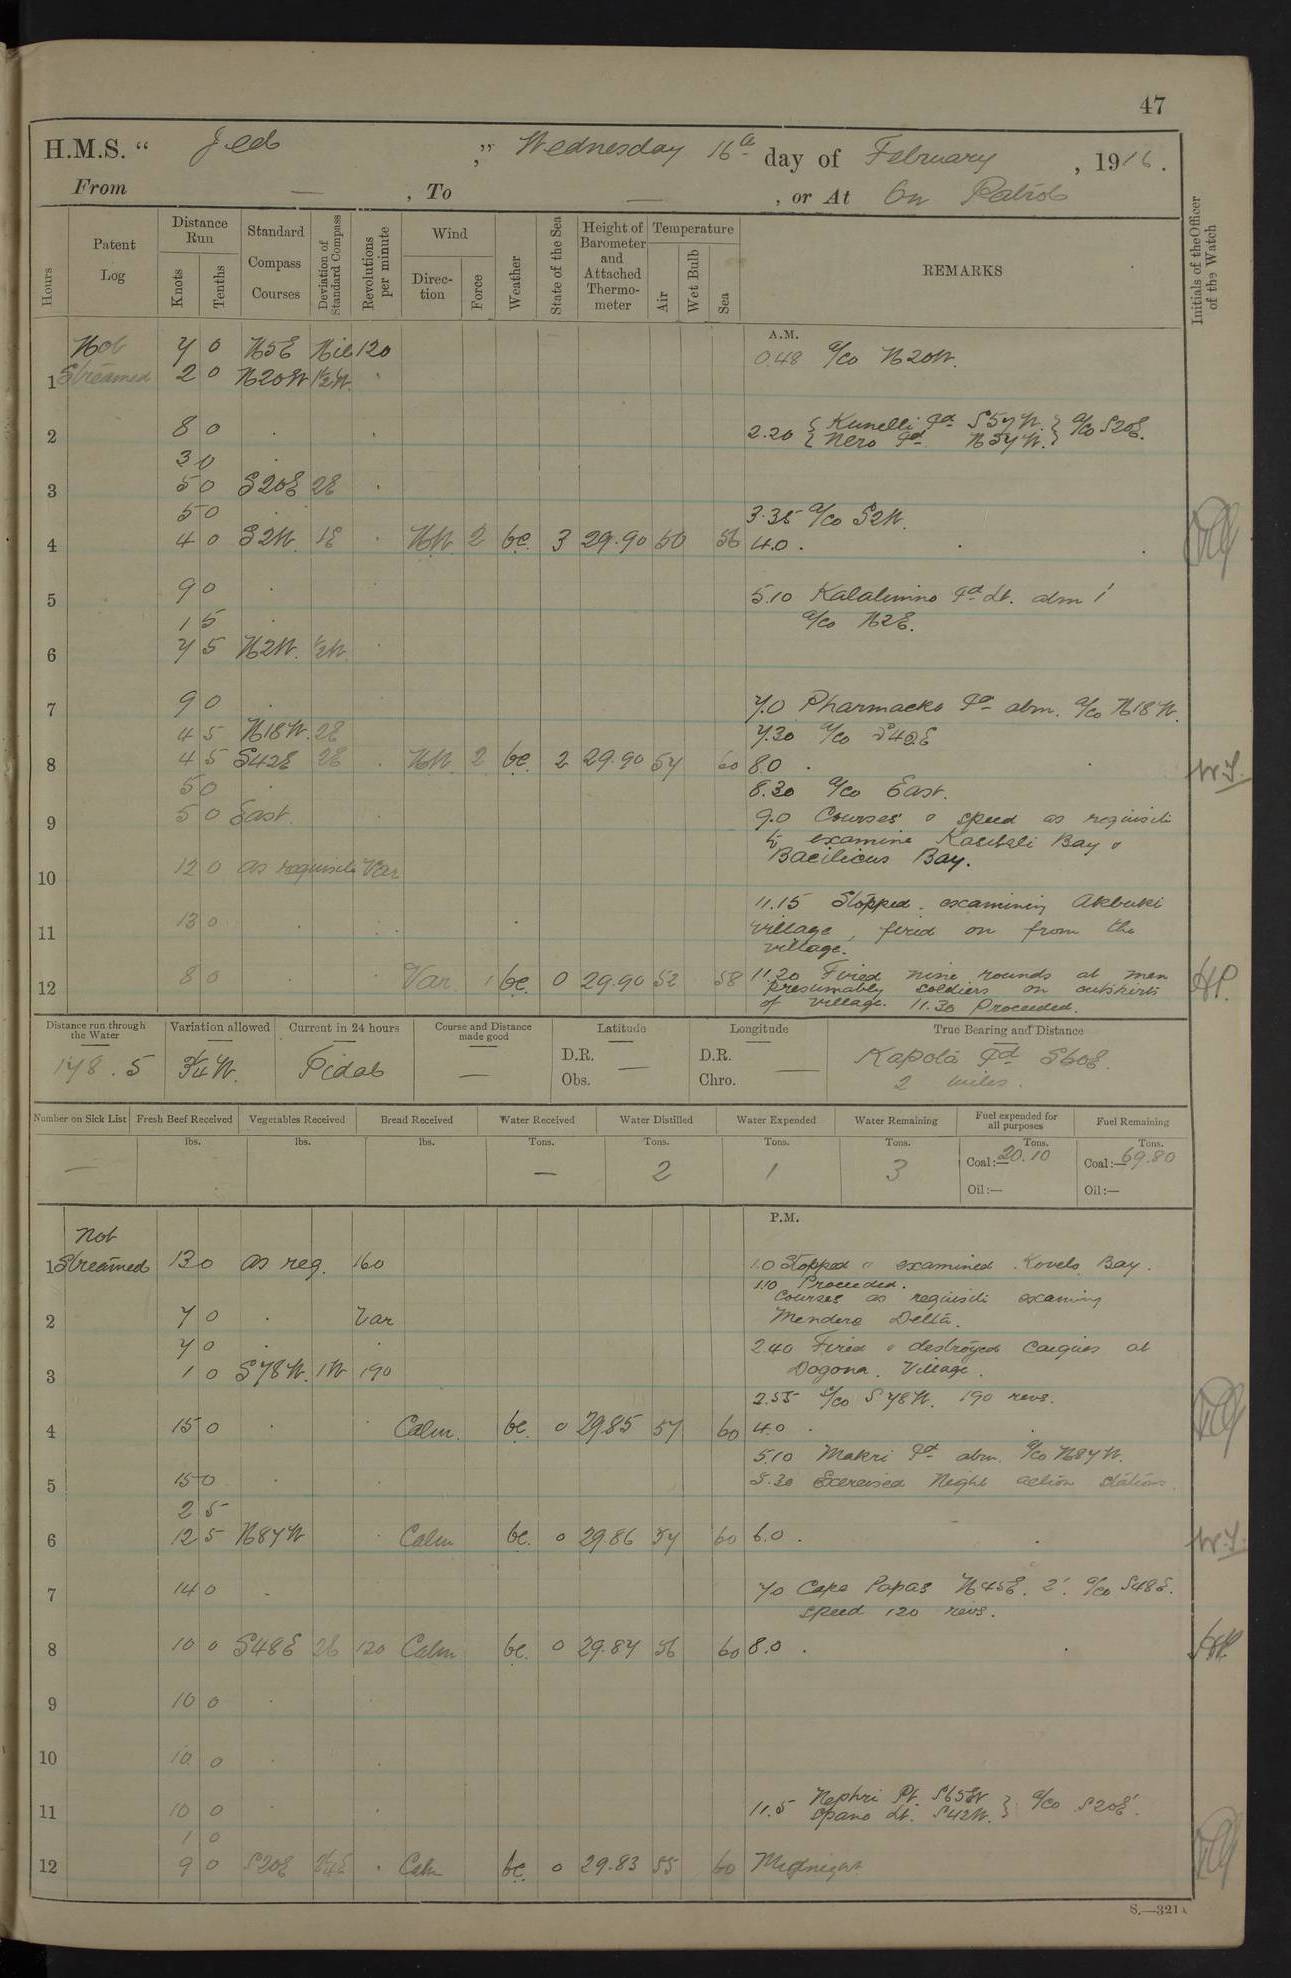 47
H.M.S. “ Jed ,” Wednesday 16th day of February , 1916.
From — , To — , or At On Patrol
Hours
Patent Log
Distance Run
Knots
Tenths
Standard Compass Courses
Deviation of Standard Compass
Revolutions per minute
Wind
Direction
Force
Weather
State of the Sea
Height of Barometer and Attached Thermometer
Temperature
Air
Wet Bulb
Sea
REMARKS
Initials of the Officer of the Watch
A.M.
Not 7 0 N5E Nil 120 0.48 a/co N20W.
1 Streamed 2 0 N20W 1½W.
2 8 0 . . 2.20 { Kunelli Pt S57W. } a/co S20E.
{ Nero Pt N57W. }
3 0 .
3 5 0 S20E 2E .
5 0 . 3.35 a/co S2W.
4 4 0 S2W. 1E . NW 2 bc. 3 29.90 50 56 4.0 .
5 9 0 . . 5.10 Kalalimno Pt Lt. abm 1'
1 5 . a/co N2E.
6 7 5 N2W. ½W .
7 9 0 . 7.0 Pharmacko Pt abm. a/co N18W.
4 5 N18W. 2E 7.30 a/co S42E
8 4 5 S42E 2E . NW 2 bc. 2 29.90 54 60 8.0 .
5 0 . 8.30 a/co East.
9 5 0 East. 9.0 Courses & speed as requisite
to examine Kasikali Bay &
Bacilicus Bay.
10 12 0 as requisite Var
11.15 Stopped. examining Akbuki
11 13 0 . . village, fired on from the
village.
12 8 0 . . Var 1 bc. 0 29.90 52 58 11.20 Fired nine rounds at men
presumably soldiers on outskirts
of village. 11.30 Proceeded.
Distance run through the Water
Variation allowed
Current in 24 hours
Course and Distance made good
Latitude
Longitude
True Bearing and Distance
178.5 ¾W. Tidal — D.R. Obs. — D.R. Chro. — Kapola Pt S60E.
2 miles.
Number on Sick List
Fresh Beef Received
Vegetables Received
Bread Received
Water Received
Water Distilled
Water Expended
Water Remaining
Fuel expended for all purposes
Fuel Remaining
lbs. lbs. lbs. Tons. Tons. Tons. Tons. Tons. Tons.
— — 2 1 3 Coal:— 20.10 Coal:— 69.80
Oil:— Oil:—
P.M.
Not
1 Streamed 13 0 as req. 160 1.0 Stopped & examined Kovela Bay.
1.10 Proceeded.
Courses as requisite examing
2 7 0 . Var Mendere Delta.
7 0 . . 2.40 Fired & destroyed caiques at
3 1 0 S78W. 1W 190 Dogona. Village.
2.55 a/co S78W. 190 revs.
4 15 0 . . Calm. bc. 0 29.85 57 60 4.0 .
5.10 Makri Pt abm. a/co N87W.
5 15 0 . . 5.30 Exercised Night action stations.
2 5
6 12 5 N87W . Calm bc. 0 29.86 57 60 6.0 .
7 14 0 . 7.0 Cape Papas N45E. 2'. a/co S48E.
speed 120 revs.
8 10 0 S48E 2E 120 Calm bc. 0 29.84 56 60 8.0 .
9 10 0 . .
10 10 0 . .
11 10 0 . . 11.5 Nephri Pt. S65W } a/co S20E.
Spano Lt. S42W. }
1 0
12 9 0 S20E ¾E . Calm bc. 0 29.83 55 60 Midnight
S.—321A